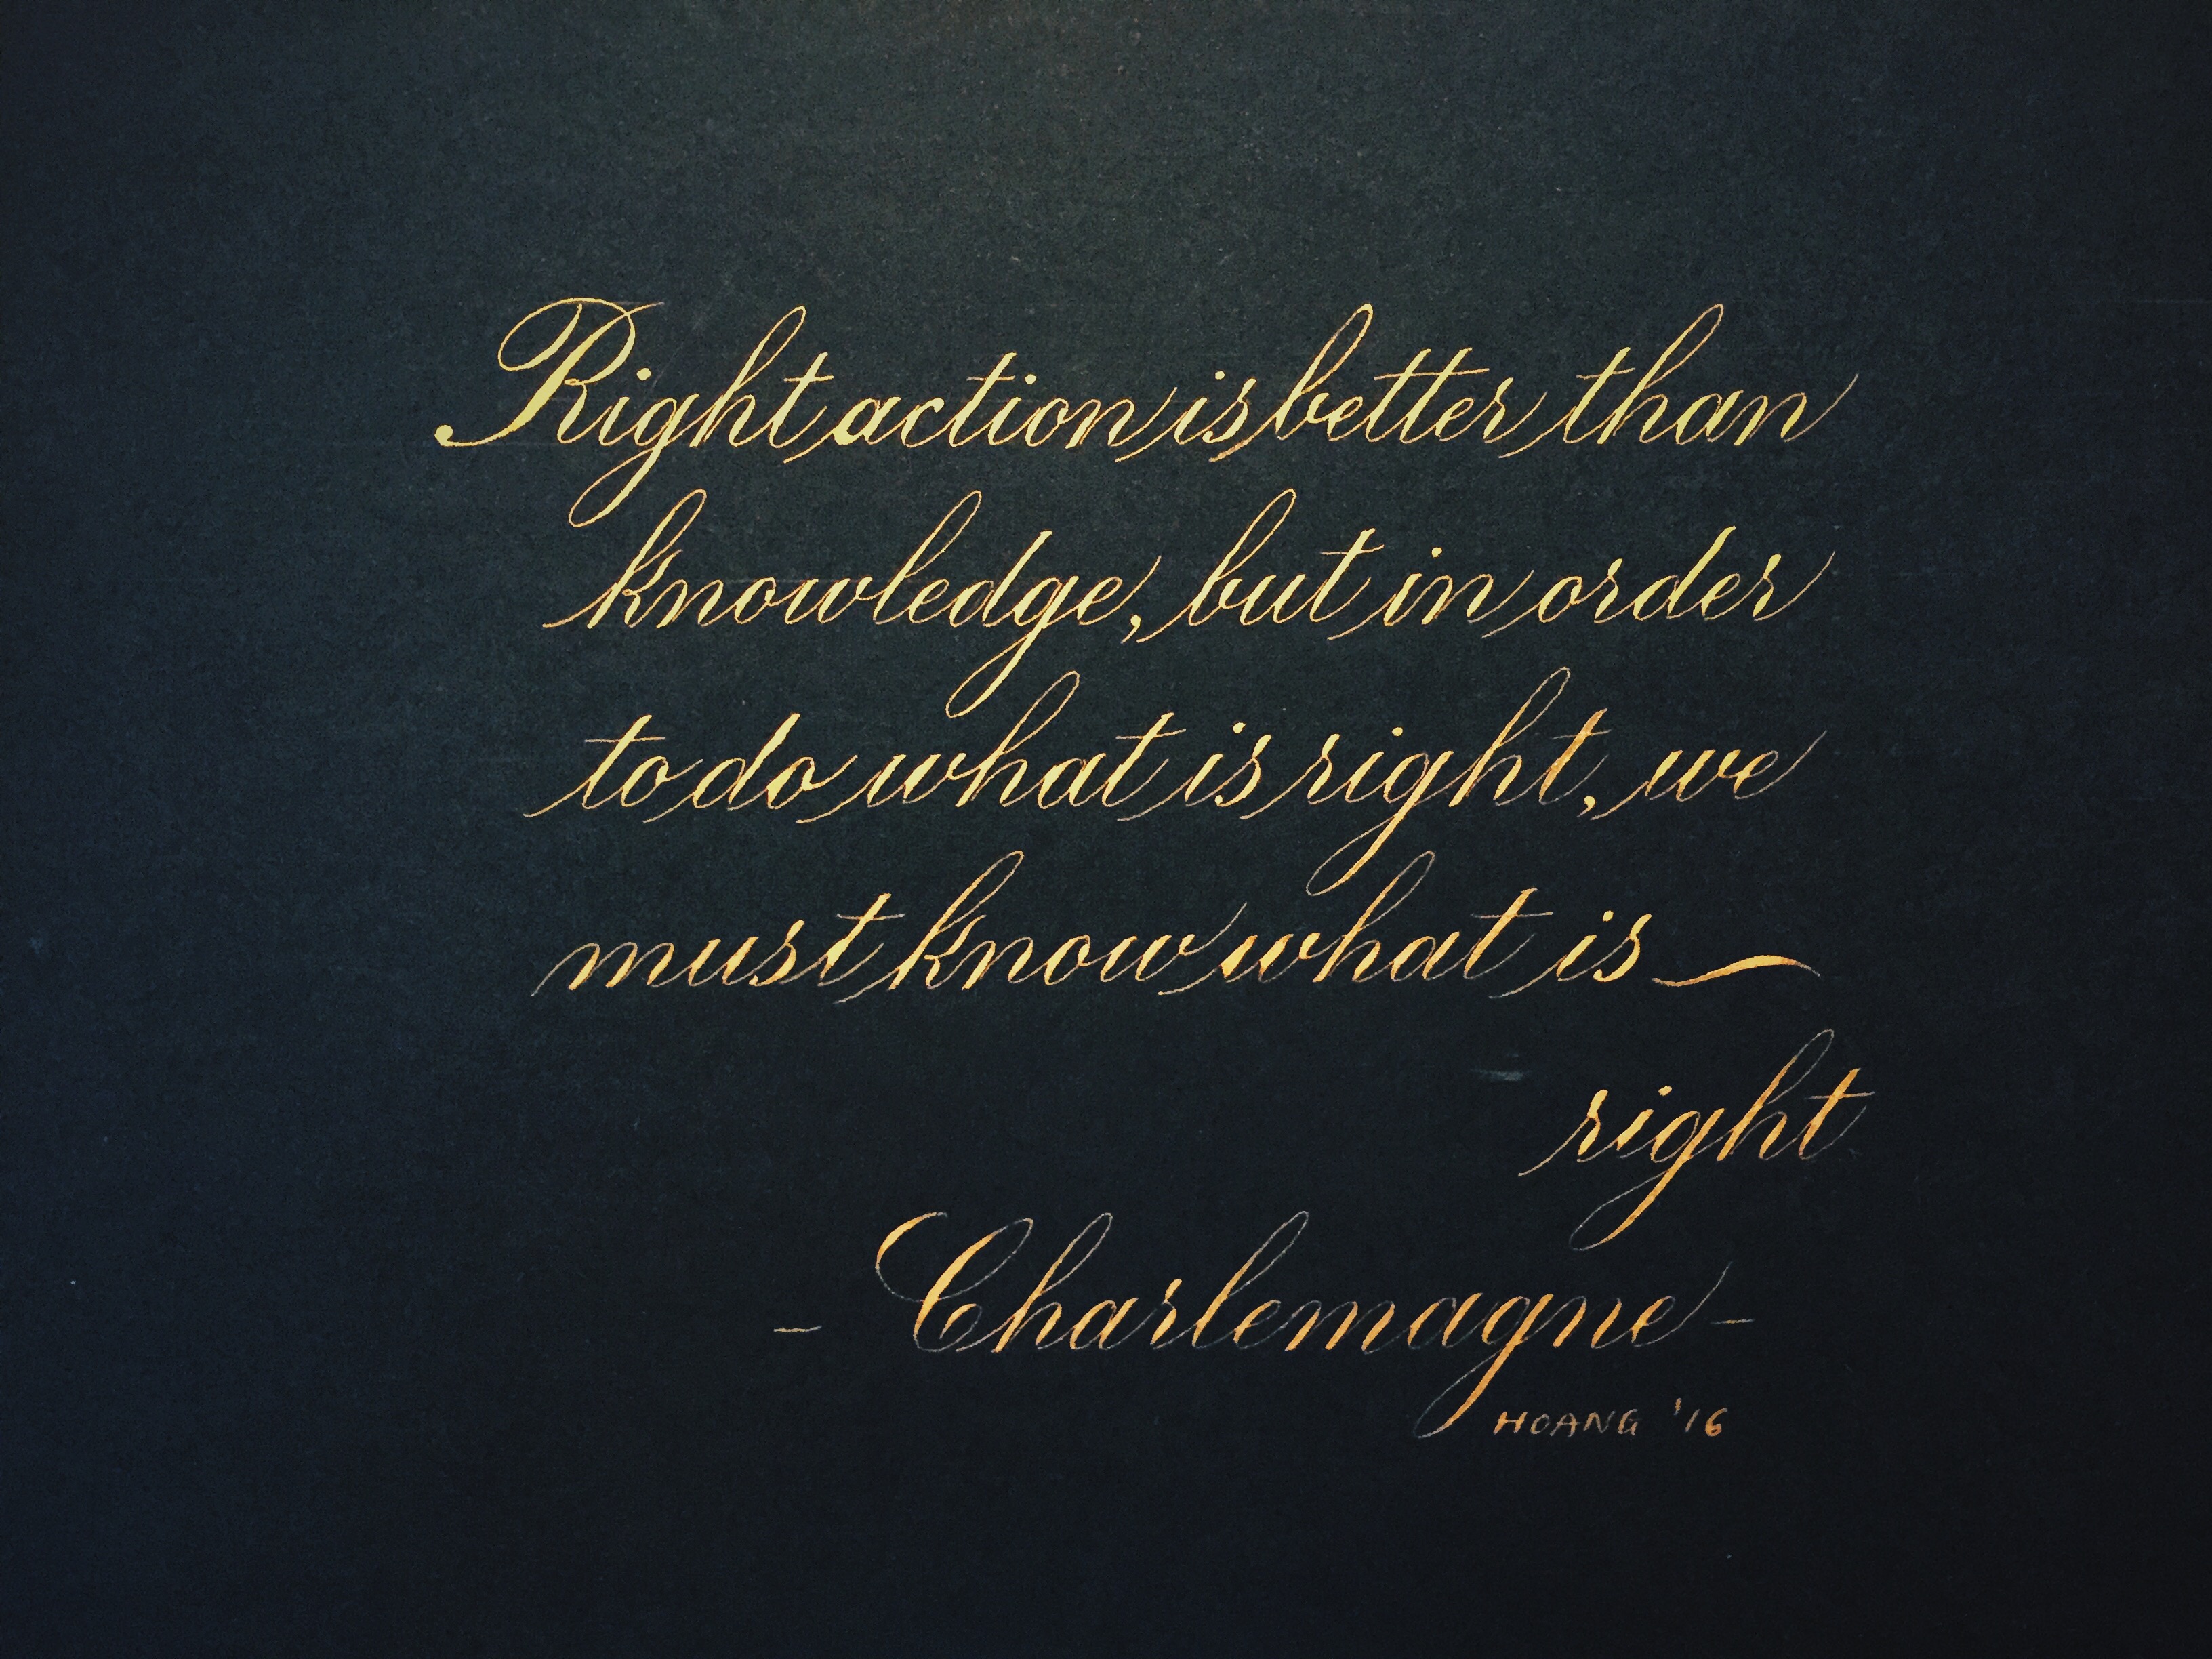 Right action is better than
knowledge, but in order
to do what is right, we
must know what is ~
right
- Charlemagne -
HOANG '16